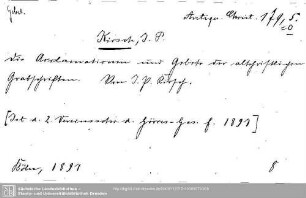 Gebet.
Antiqu. Christ. 179, 5
0
Kirsch, J. P.
Die Acclamationen und Gebete der altchristlichen
Grabschriften. Von J. P. Kirsch.
[Ist d. 2. Vereinsschr. d. Görres-Ges. f. 1897]
Köln, 1897 8
Sächsische Landesbibliothek -
Staats- und Universitätsbibliothek Dresden